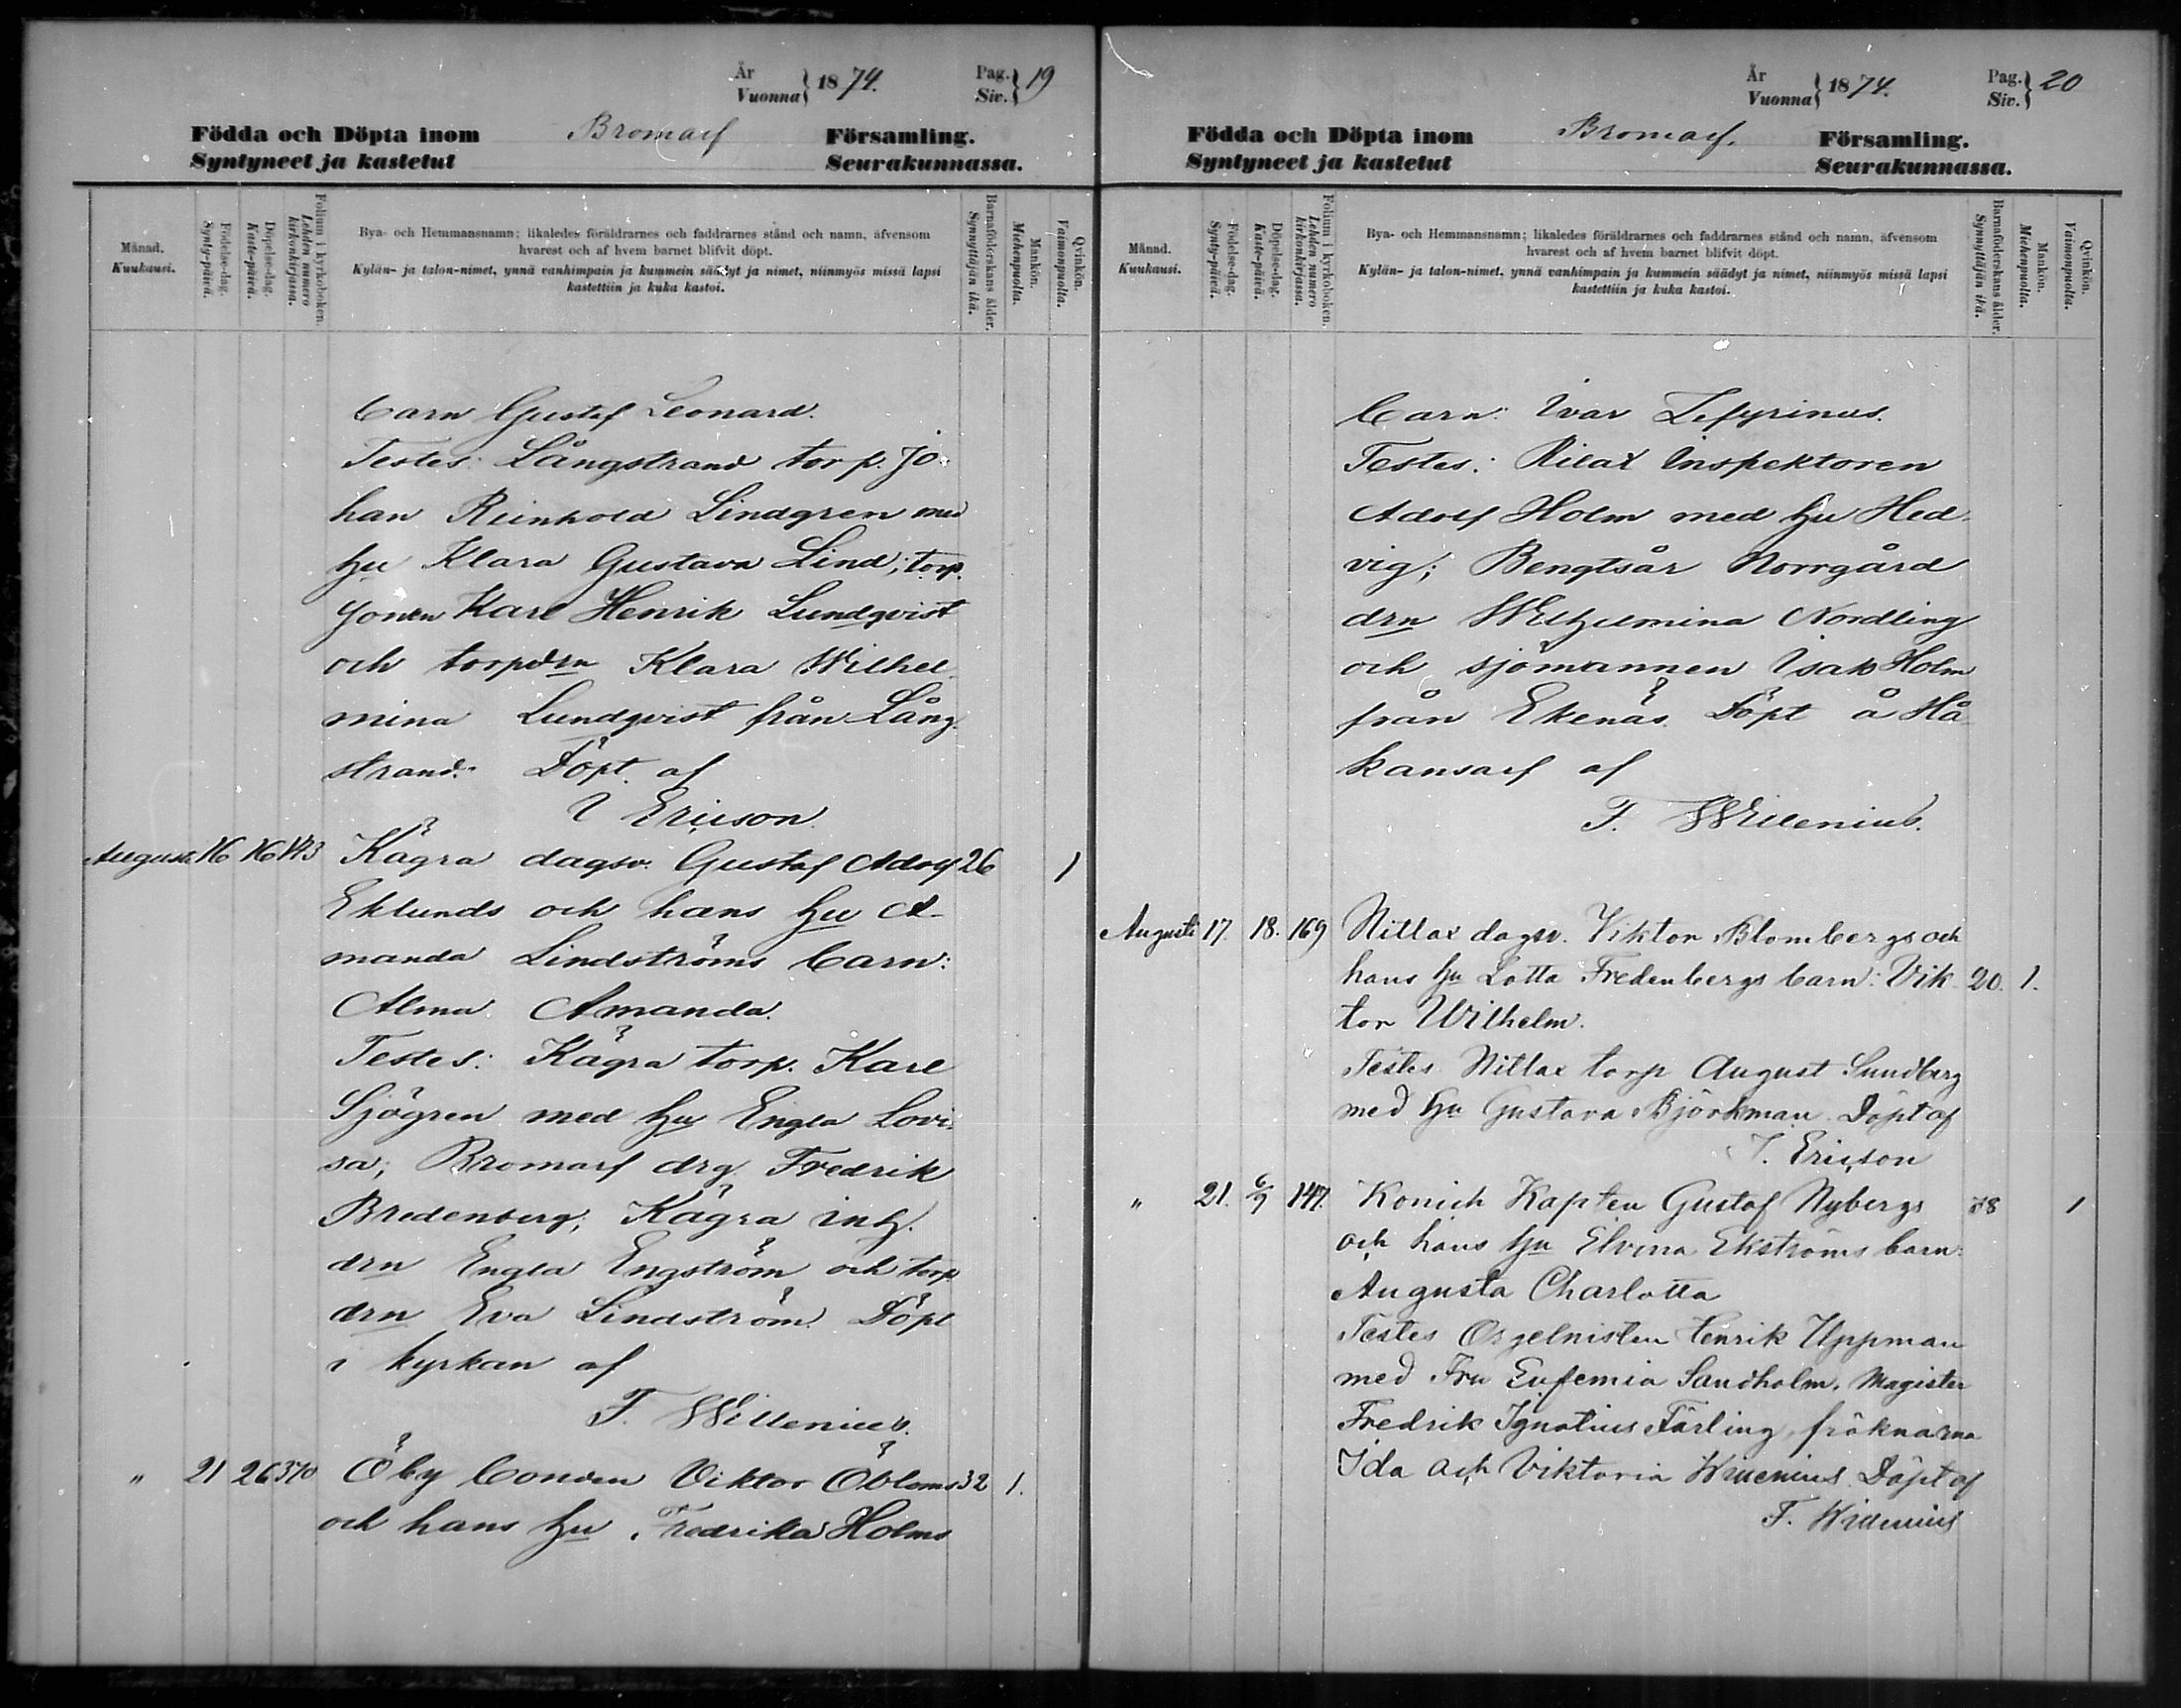 År
Vuonna } 1874.
Pag.
Siv. } 19
Födda och Döpta inom Bromarf Församling.
Syntyneet ja kastetut Seurakunnassa.
Månad.
Kuukausi.
Födelse-dag.
Synty-päivä.
Döpelse-dag.
Kaste-päivä.
Folium i kyrkoboken.
Lehden numero
kirkonkirjassa.
Bya- och Hemmansnamn; likaledes föräldrarnes och faddrarnes stånd och namn, äfvensom
hvarest och af hvem barnet blifvit döpt.
Kylän- ja talon-nimet, ynnä vanhimpain ja kummein säädyt ja nimet, niinmyös missä lapsi
kastettiin ja kuka kastoi.
Barnaföderskans ålder.
Synnyttäjän ikä.
Mankön.
Miehenpuolta.
Qvinkön.
Vaimonpuolta.
barn Gustaf Leonard.
Testes: Långstrand torp. Jo-
han Reinhold Lindgren med
hu Klara Gustava Lind; torp.
sonen Karl Henrik Lundqvist
och torpdrn Klara Wilhel-
mina Lundqvist från Lång-
strand. Döpt af
I Ericson.
August 16 16 143 Kägra dagsv. Gustaf Adolf 26 1
Eklunds och hans hu A-
manda Lindströms barn:
Alma Amanda.
Testes: Kägra torp. Karl
Sjögren med hu Engla Lovi-
sa; Bromarf drg. Fredrik
Bredenberg; Kägra inh.
drn Engla Engström och torp
drn Eva Lindström. Döpt
i kyrkan af
F. Willenius.
" 21 26 370 Öby bonden Viktor Öbloms 32 1.
och hans hu Fredrika Holms
År
Vuonna } 1874.
Pag.
Siv. } 20
Födda och Döpta inom Bromarf. Församling.
Syntyneet ja kastetut Seurakunnassa.
Månad.
Kuukausi.
Födelse-dag.
Synty-päivä.
Döpelse-dag.
Kaste-päivä.
Folium i kyrkoboken.
Lehden numero
kirkonkirjassa.
Bya- och Hemmansnamn; likaledes föräldrarnes och faddrarnes stånd och namn, äfvensom
hvarest och af hvem barnet blifvit döpt.
Kylän- ja talon-nimet, ynnä vanhimpain ja kummein säädyt ja nimet, niinmyös missä lapsi
kastettiin ja kuka kastoi.
Barnaföderskans ålder.
Synnyttäjän ikä.
Mankön.
Miehenpuolta.
Qvinkön.
Vaimonpuolta.
barn: Ivar Zefyrinus.
Testes: Rilax Inspektoren
Adolf Holm med hu Hed-
vig; Bengtsår Norrgård
drn Wilhelmina Nordling
och sjömannen Isak Holm
från Ekenäs. Döpt å Hå-
kansarf af
F. Willenius.
Augusti 17. 18. 169 Nitlax dagsv. Viktor Blombergs och
hans hu Lotta Fredenbergs barn: Vik- 20. 1.
tor Wilhelm.
Testes Nitlax torp August Sundberg
med hu Gustava Björkman. Döpt af
I. Ericson
" 21. 6/9 147. Kapten Gustaf Nybergs 38 1
och hans hu Elvira Ekströms barn:
Augusta Charlotta
Testes Orgelnisten Henrik Uppman
med Fru Eufemia Sandholm, Magister
Fredrik Ignatius Färling, fröknarna
Ida och Viktoria Willenius. Döpt af
F. Willenius